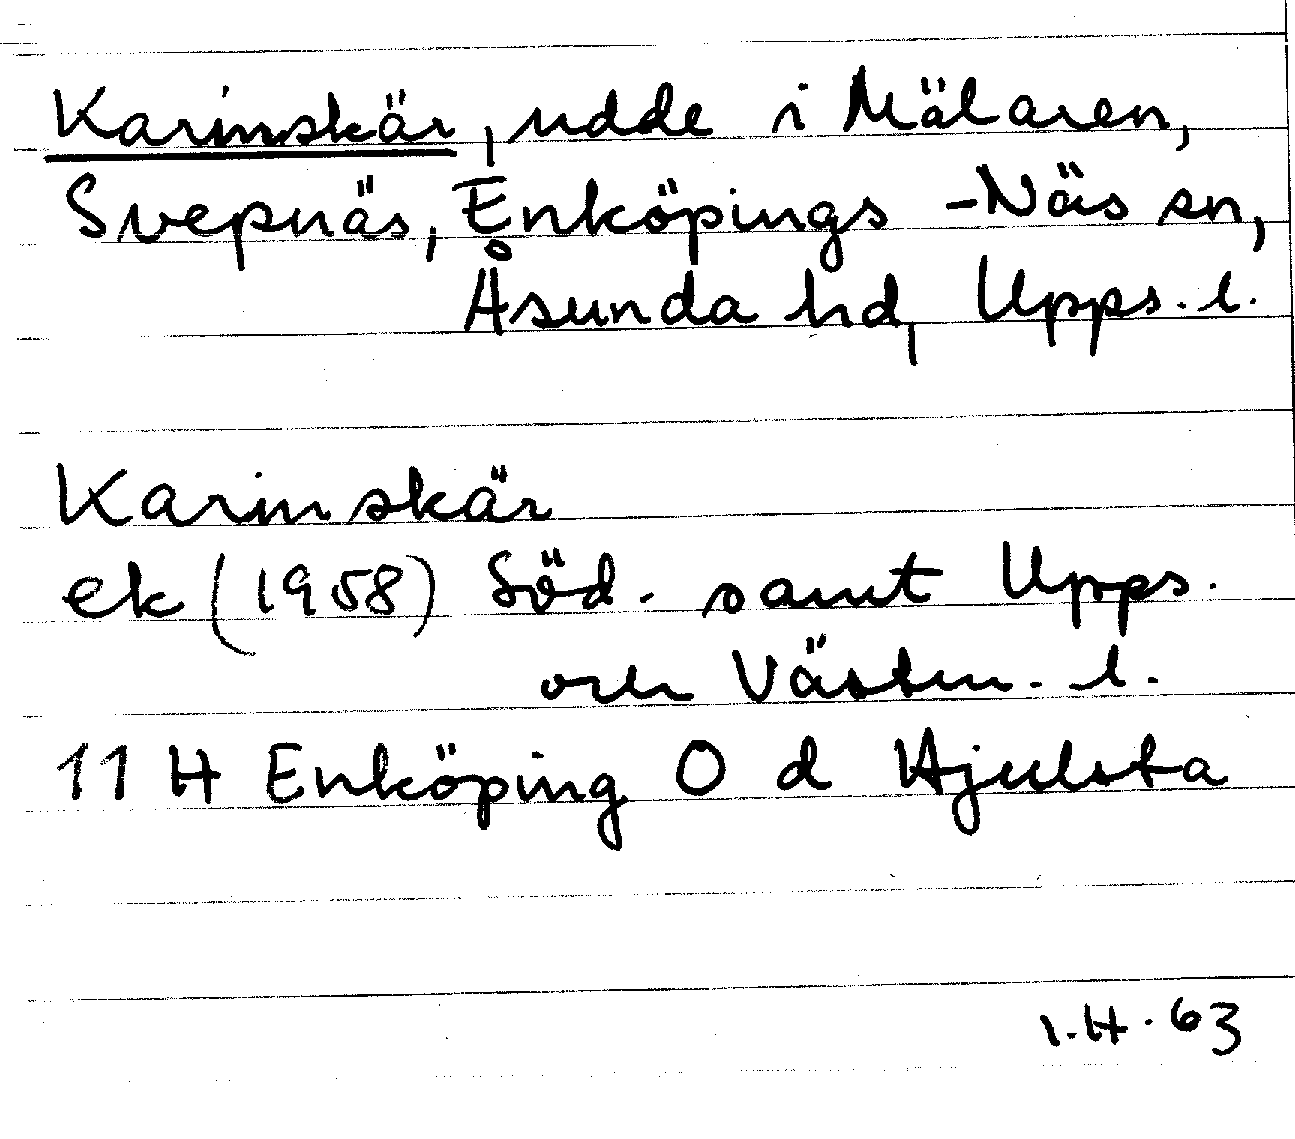 Karinskär, udde i Mälaren,
Svepnäs, Enköpings-Näs sn,
Åsunda hd, Upps. l.
Karinskär
ek (1958) Söd. samt Upps.
och Västm. l.
11 H Enköping O d Hjulsta
I.H. 63